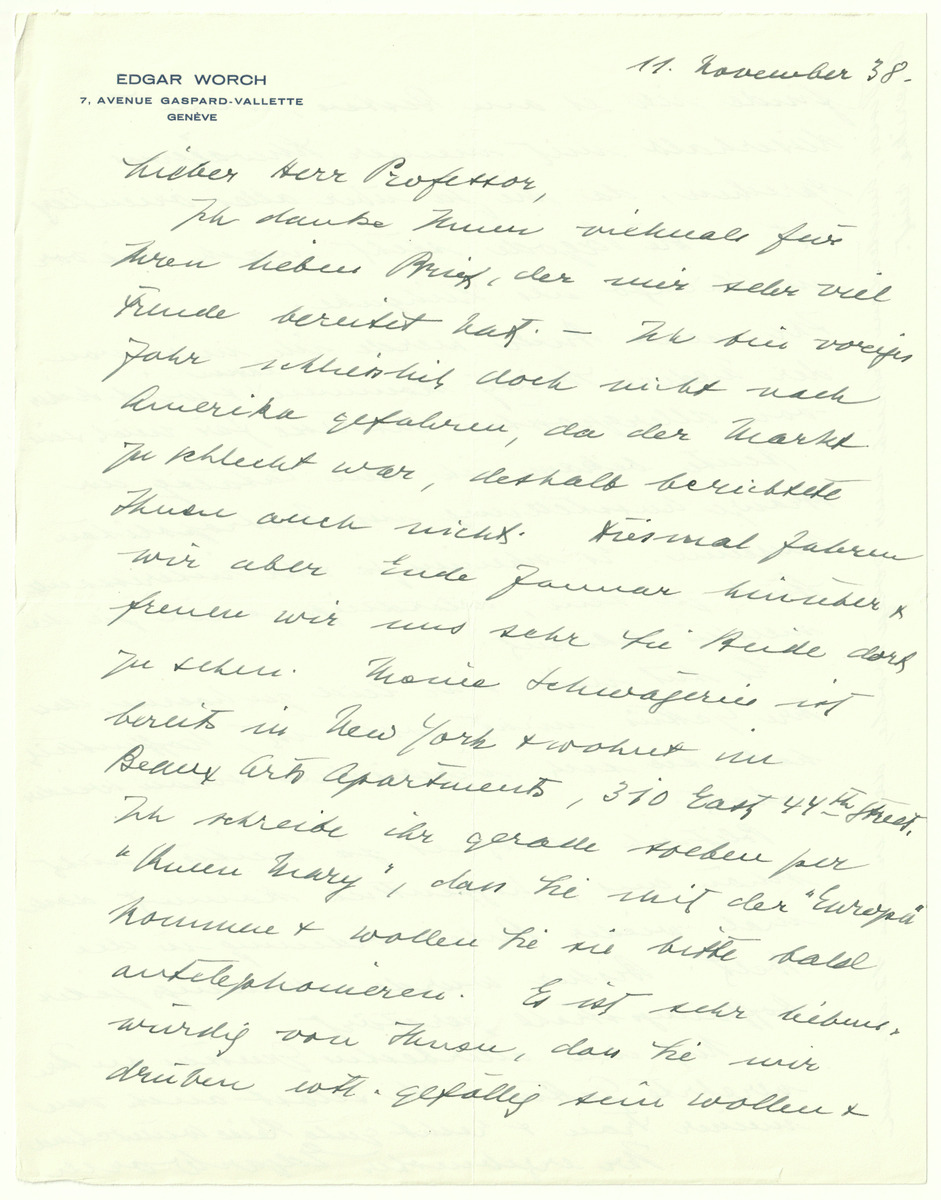 EDGAR WORCH
7, AVENUE GASPARD-VALLETTE
GENÈVE
11. November 38.
Lieber Herr Professor,
Ich danke Ihnen vielmals für
Ihren lieben Brief, der mir sehr viel
Freude bereitet hat. – Ich bin voriges
Jahr schliesslich doch nicht nach
Amerika gefahren, da der Markt
zu schlecht war, deshalb berichtete
Ihnen auch nicht. Diesmal fahren
wir aber Ende Januar hinüber +
freuen wir uns sehr Sie Beide dort
zu sehen. Meine Schwägerin ist
bereits in New York + wohnt im
Beaux Arts Apartments, 310 East 44th Street.
Ich schreibe ihr gerade soeben per
"Queen Mary", dass Sie mit der "Europa"
kommen + wollen Sie sie bitte bald
antelephonieren. Es ist sehr liebens-
würdig von Ihnen, dass Sie mir
drüben evtl. gefällig sein wollen +